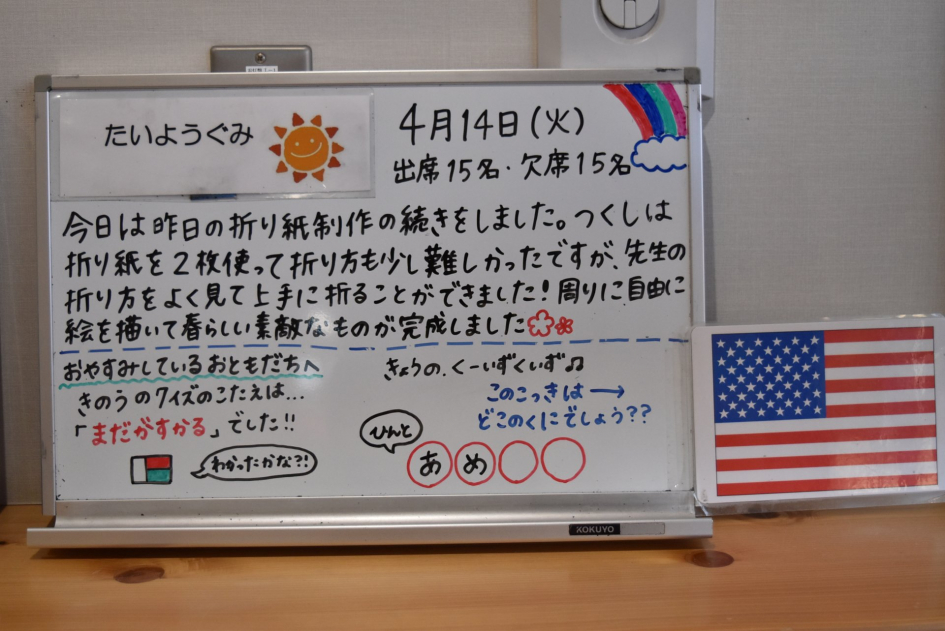 たいようぐみ
4月14日(火)
出席15名・欠席15名
今日は昨日の折り紙制作の続きをしました。つくしは
折り紙を2枚使って折り方も少し難しかったですが、先生の
折り方をよく見て上手に折ることができました!周りに自由に
絵を描いて春らしい素敵なものが完成しました
おやすみしているおともだちへ
きのうのクイズのこたえは...
「まだがすかる」でした!!
わかったかな?!
きょうの、くーいずくいず♫
このこっきは→
どこのくにでしょう??
ひんと
あめ○○
KOKUYO